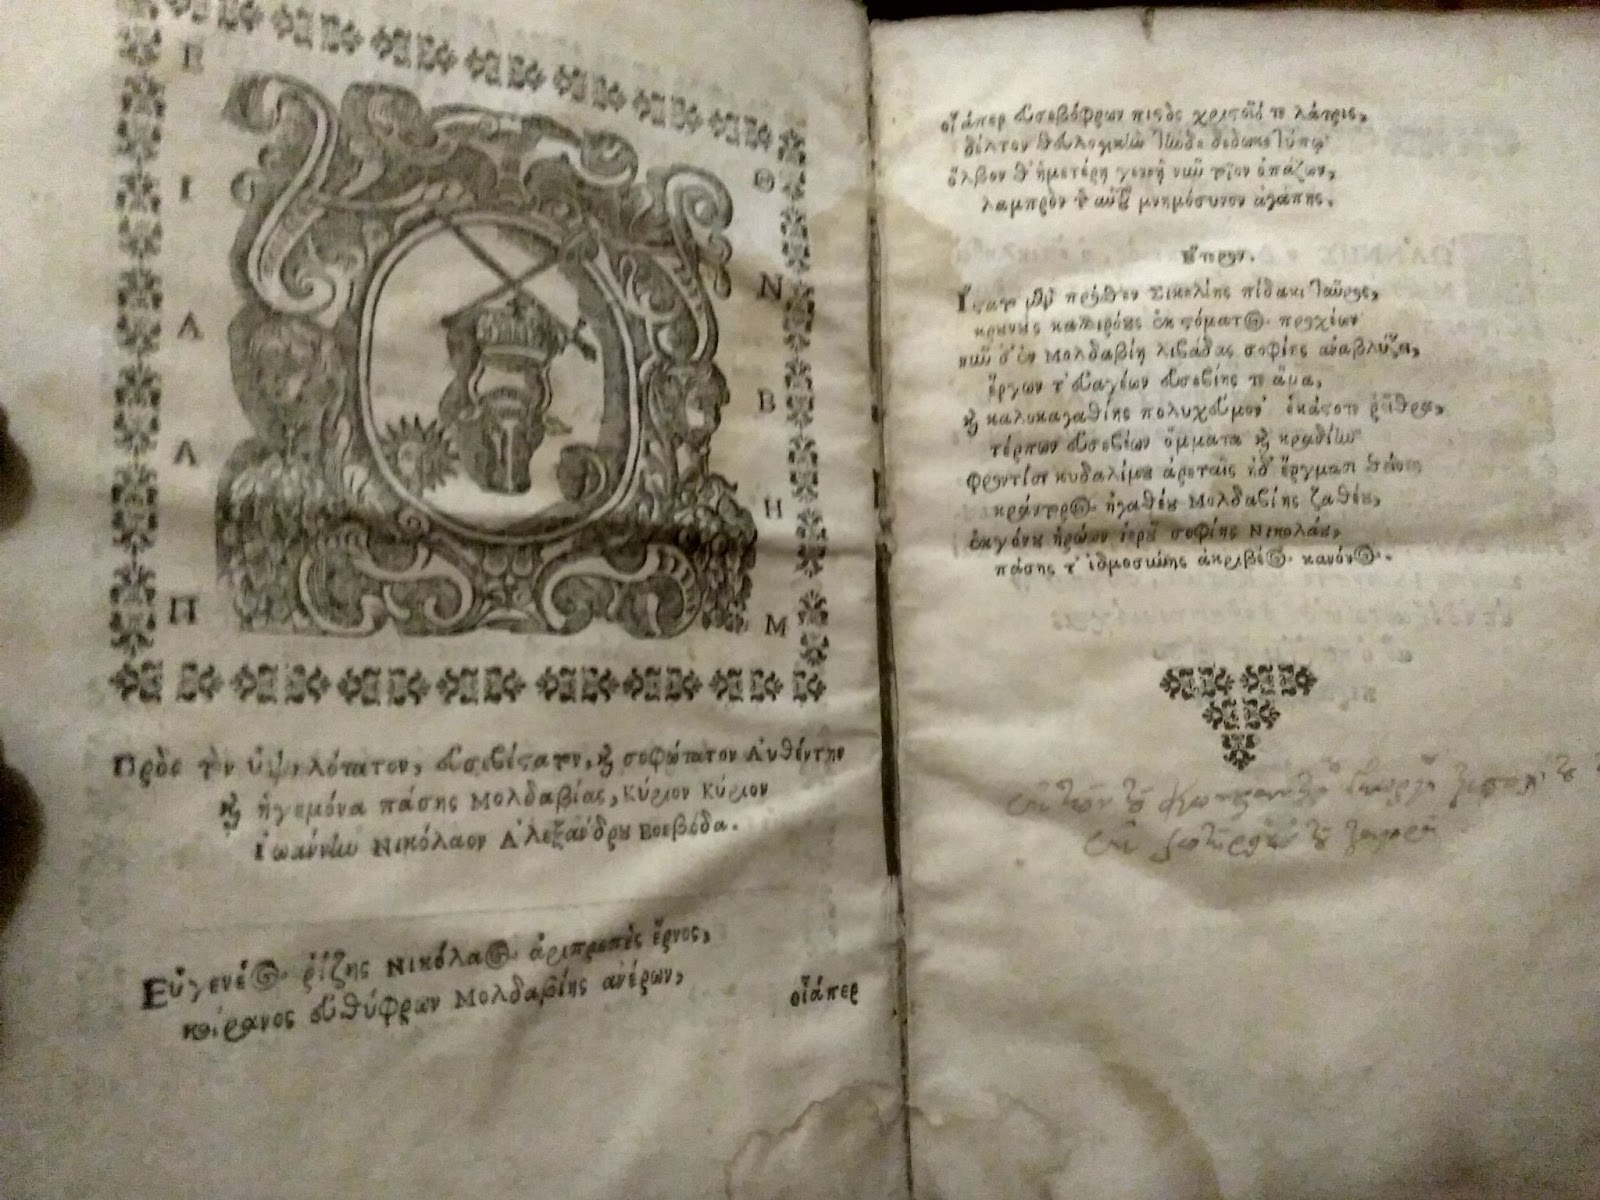 Ε Θ
Ι Ν
Λ Β
Λ Η
Π Μ
Πρὸς τὸν ὑψηλότατον, εὐσεβέστατον, καὶ σοφώτατον Αὐθέντην
καὶ ἡγεμόνα πάσης Μολδαβίας, Κύριον Κύριον
Ἰωάννην Νικόλαον Ἀλεξάνδρου Βοεβόδα.
Εὐγενέος ῥίζης Νικόλαος ἀριπρεπὲς ἔρνος,
κοίρανος εὐθύφρων Μολδαβίης ἀνέρων,
οἷάπερ
οἷάπερ εὐσεβόφρων πιστὸς χριστοῖό τε λάτρις,
δέλτον θεολογικὴν τήνδε δέδωκε τύπῳ
ὄλβον θ' ἡμετέρῃ γενεῇ νῦν ὀπάζων,
λαμπρὸν τ' αὐτοῦ μνημόσυνον ἀγάπης.
Ἕτερον.
Ἵστατο μὲν πρόσθεν Σικελίης πίδακι ταῦρος,
κρουνοὺς καλλιρόους ἐκ στόματος προχέων
νῦν δ' ἐν Μολδαβίῃ λιβάδας σοφίης ἀναβλύζει,
ἔργων τ' εὐαγέων εὐσεβίης τε ἅμα,
καὶ καλοκαγαθίης πολυχεύμον' ἑκάστοτε ῥεῖθρα,
τέρπων εὐσεβέων ὄμματα καὶ κραδίην
φροντίσι κυδαλίμου ἀρεταῖς ἠδ' ἔργμασι
κράντορος ἠγαθέου Μολδαβίης ζαθέου,
ἐκγόνου ἡρώων ἱεροῦ σοφίης Νικολάου,
πάσης τ' ἰδμοσύνης ἀκριβέος κανόνος.